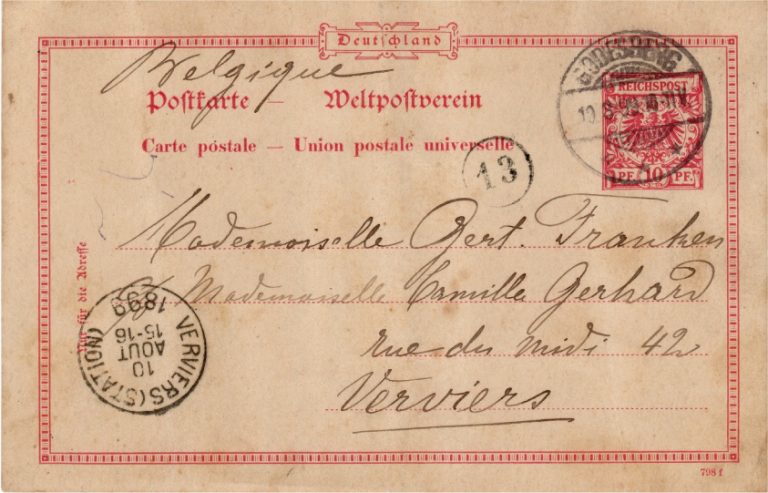 Deutschland
Belgique
Postkarte — Weltpostverein
Carte postale — Union postale universelle
GODESBERG
REICHSPOST
PF. 10 PF.
13
Mademoiselle Gert. Franken
Mademoiselle Camille Gerhard
rue du midi 42
Verviers
Nur für die Adresse
VERVIERS (STATION)
10
AOUT
15-16
1899
798 f